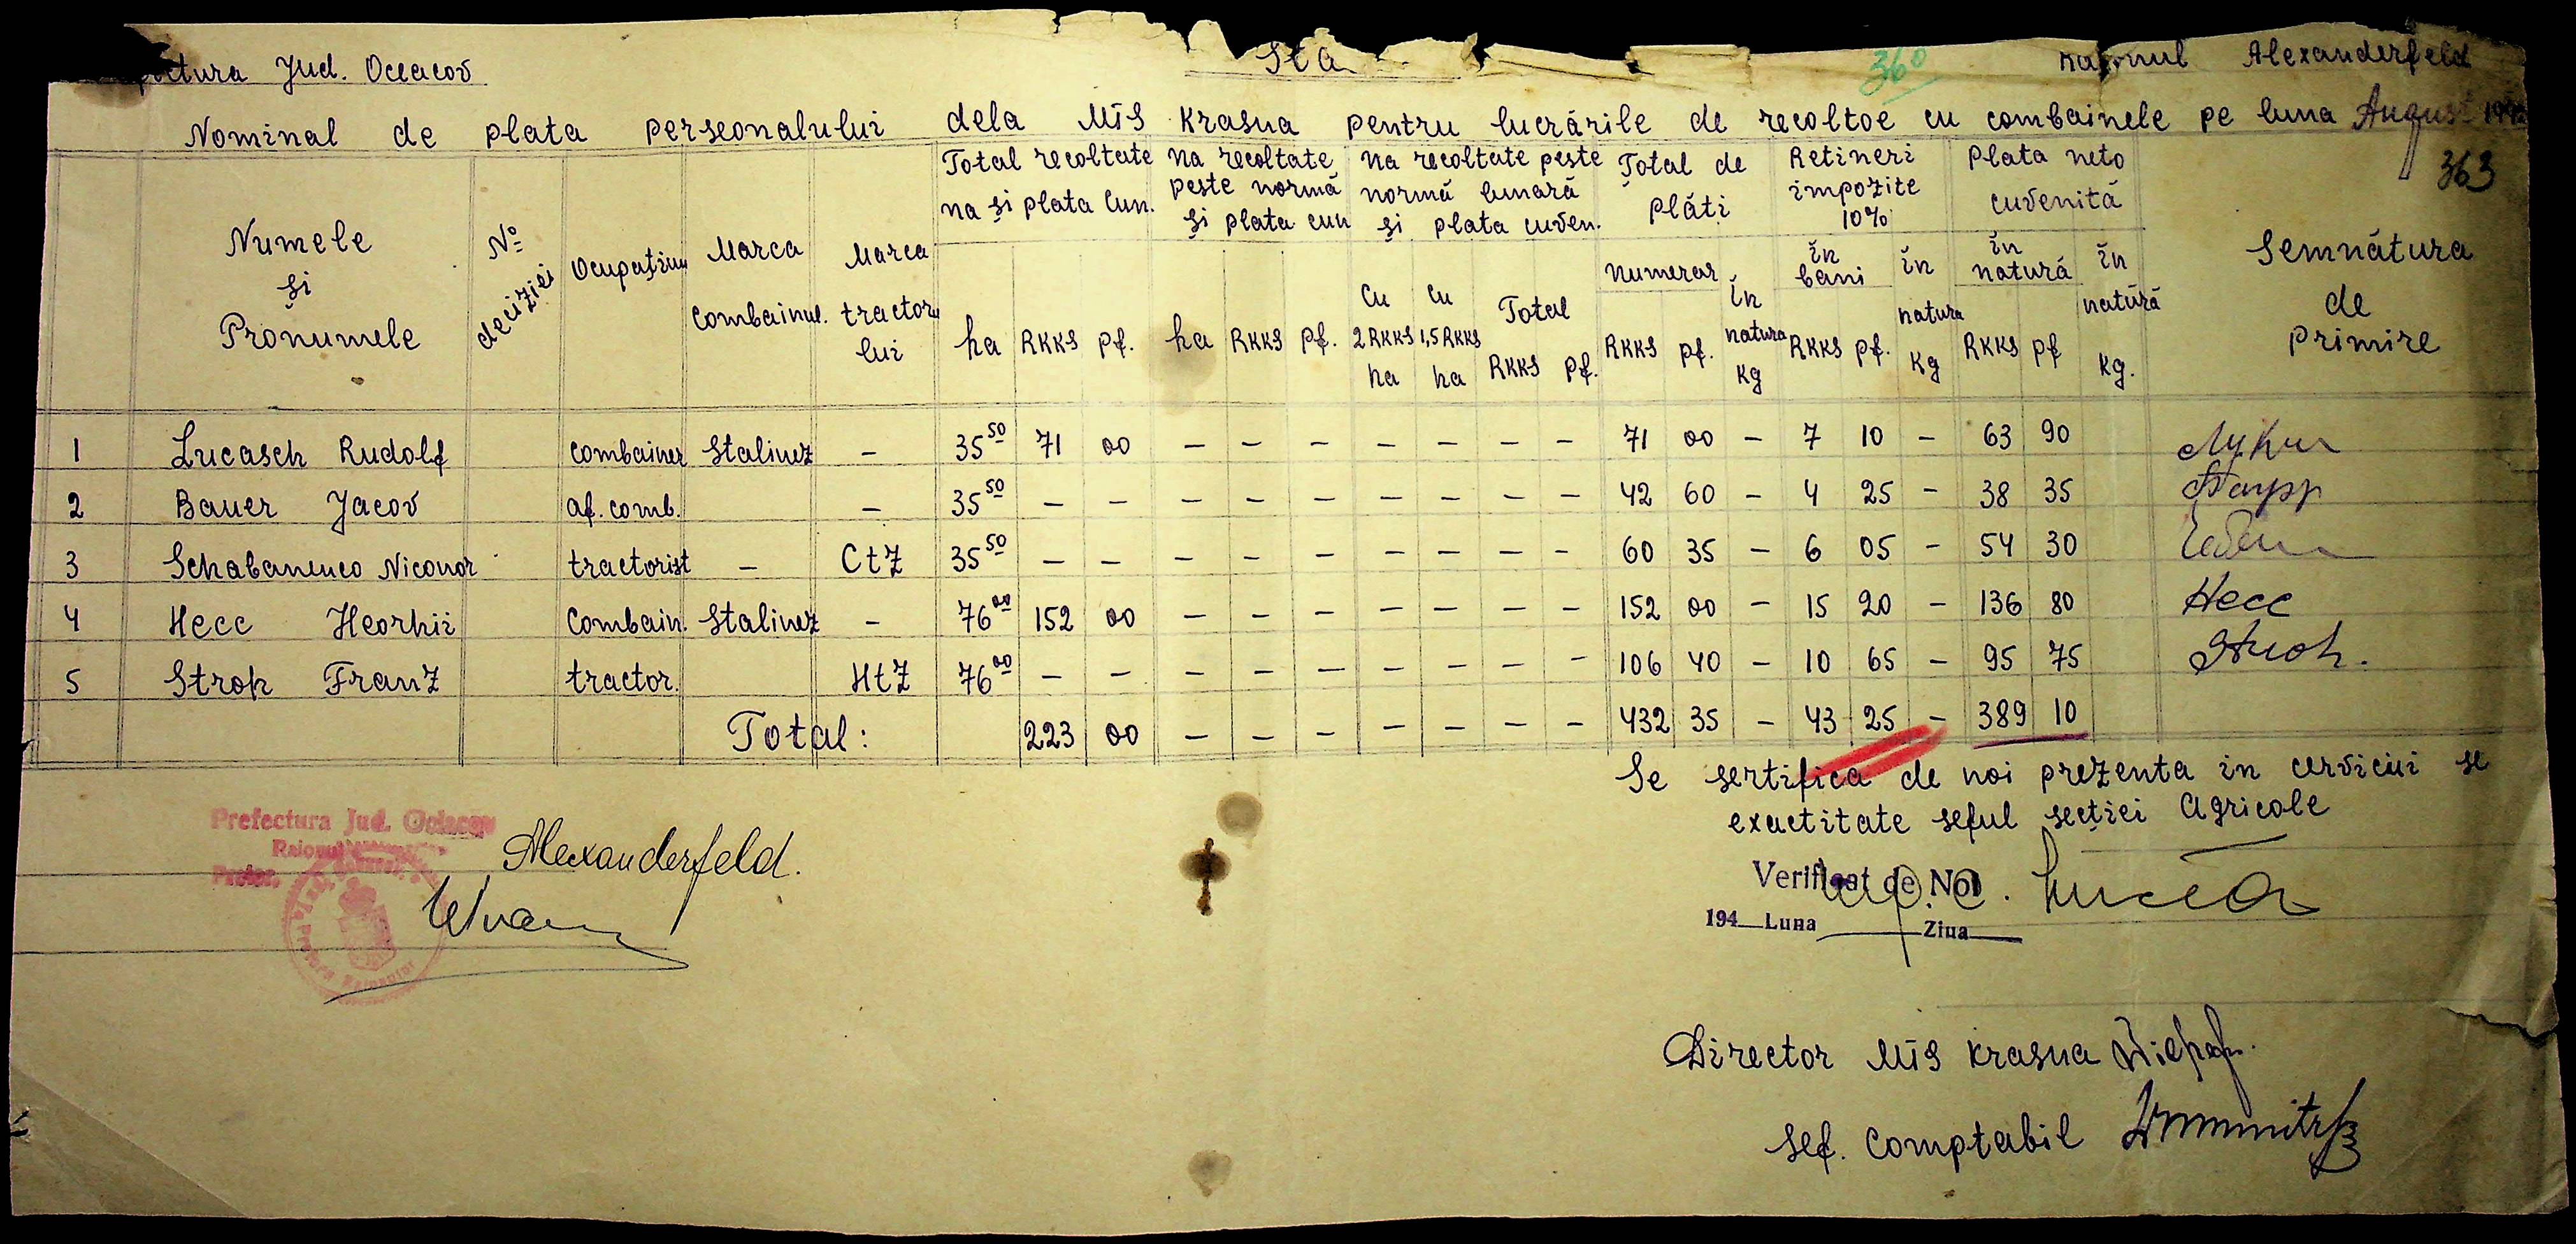 Jud. Oceacov
Sta
360
Raionul Alexanderfeld
Nominal de plata perseonalului dela MTS Krasna pentru lucrările de recoltoe cu combainele pe luna August
363
Numele și Pronumele
No deciziei
Ocupațiun
Marca Combainul.
Marca tractoru lui
Total recoltate na și plata Cun.
na recoltate peste normă și plata cun
na recoltate peste normă lunară și plata cuven.
Total de plăti
Retineri impozite 10%
Plata neto cuvenită
Semnătura de primire
numerar
în natura kg
în bani
în natura kg
în natură
în natură kg.
ha RKKS pf. ha RKKS pf. cu 2 RKKS ha cu 1,5 RKKS ha Total RKKS pf. RKKS pf. RKKS pf. RKKS pf
1 Lucasch Rudolf combainer Stalinez – 35 50 71 00 – – – – – – – 71 00 – 7 10 – 63 90
2 Bauer Jacov af. comb. – 35 50 – – – – – – – – – 42 60 – 4 25 – 38 35
3 Schabanenco Niconor tractorist – CtZ 35 50 – – – – – – – – – 60 35 – 6 05 – 54 30
4 Hecc Heorhii Combain. Stalinez – 76 00 152 00 – – – – – – – 152 00 – 15 20 – 136 80 Hecc
5 Stroh Franz tractor. HtZ 76 00 – – – – – – – – – 106 40 – 10 65 – 95 75
Total: 223 00 – – – – – – – 432 35 – 43 25 – 389 10
Se sertifica de noi prezenta in cerviciui se
exactitate seful secției Agricole
Prefectura Jud. Oceacov
Raionul Alexanderfeld.
Pretor,
Verificat de Noi
194 Luna Ziua
Director MTS Krasna
sef. Comptabil